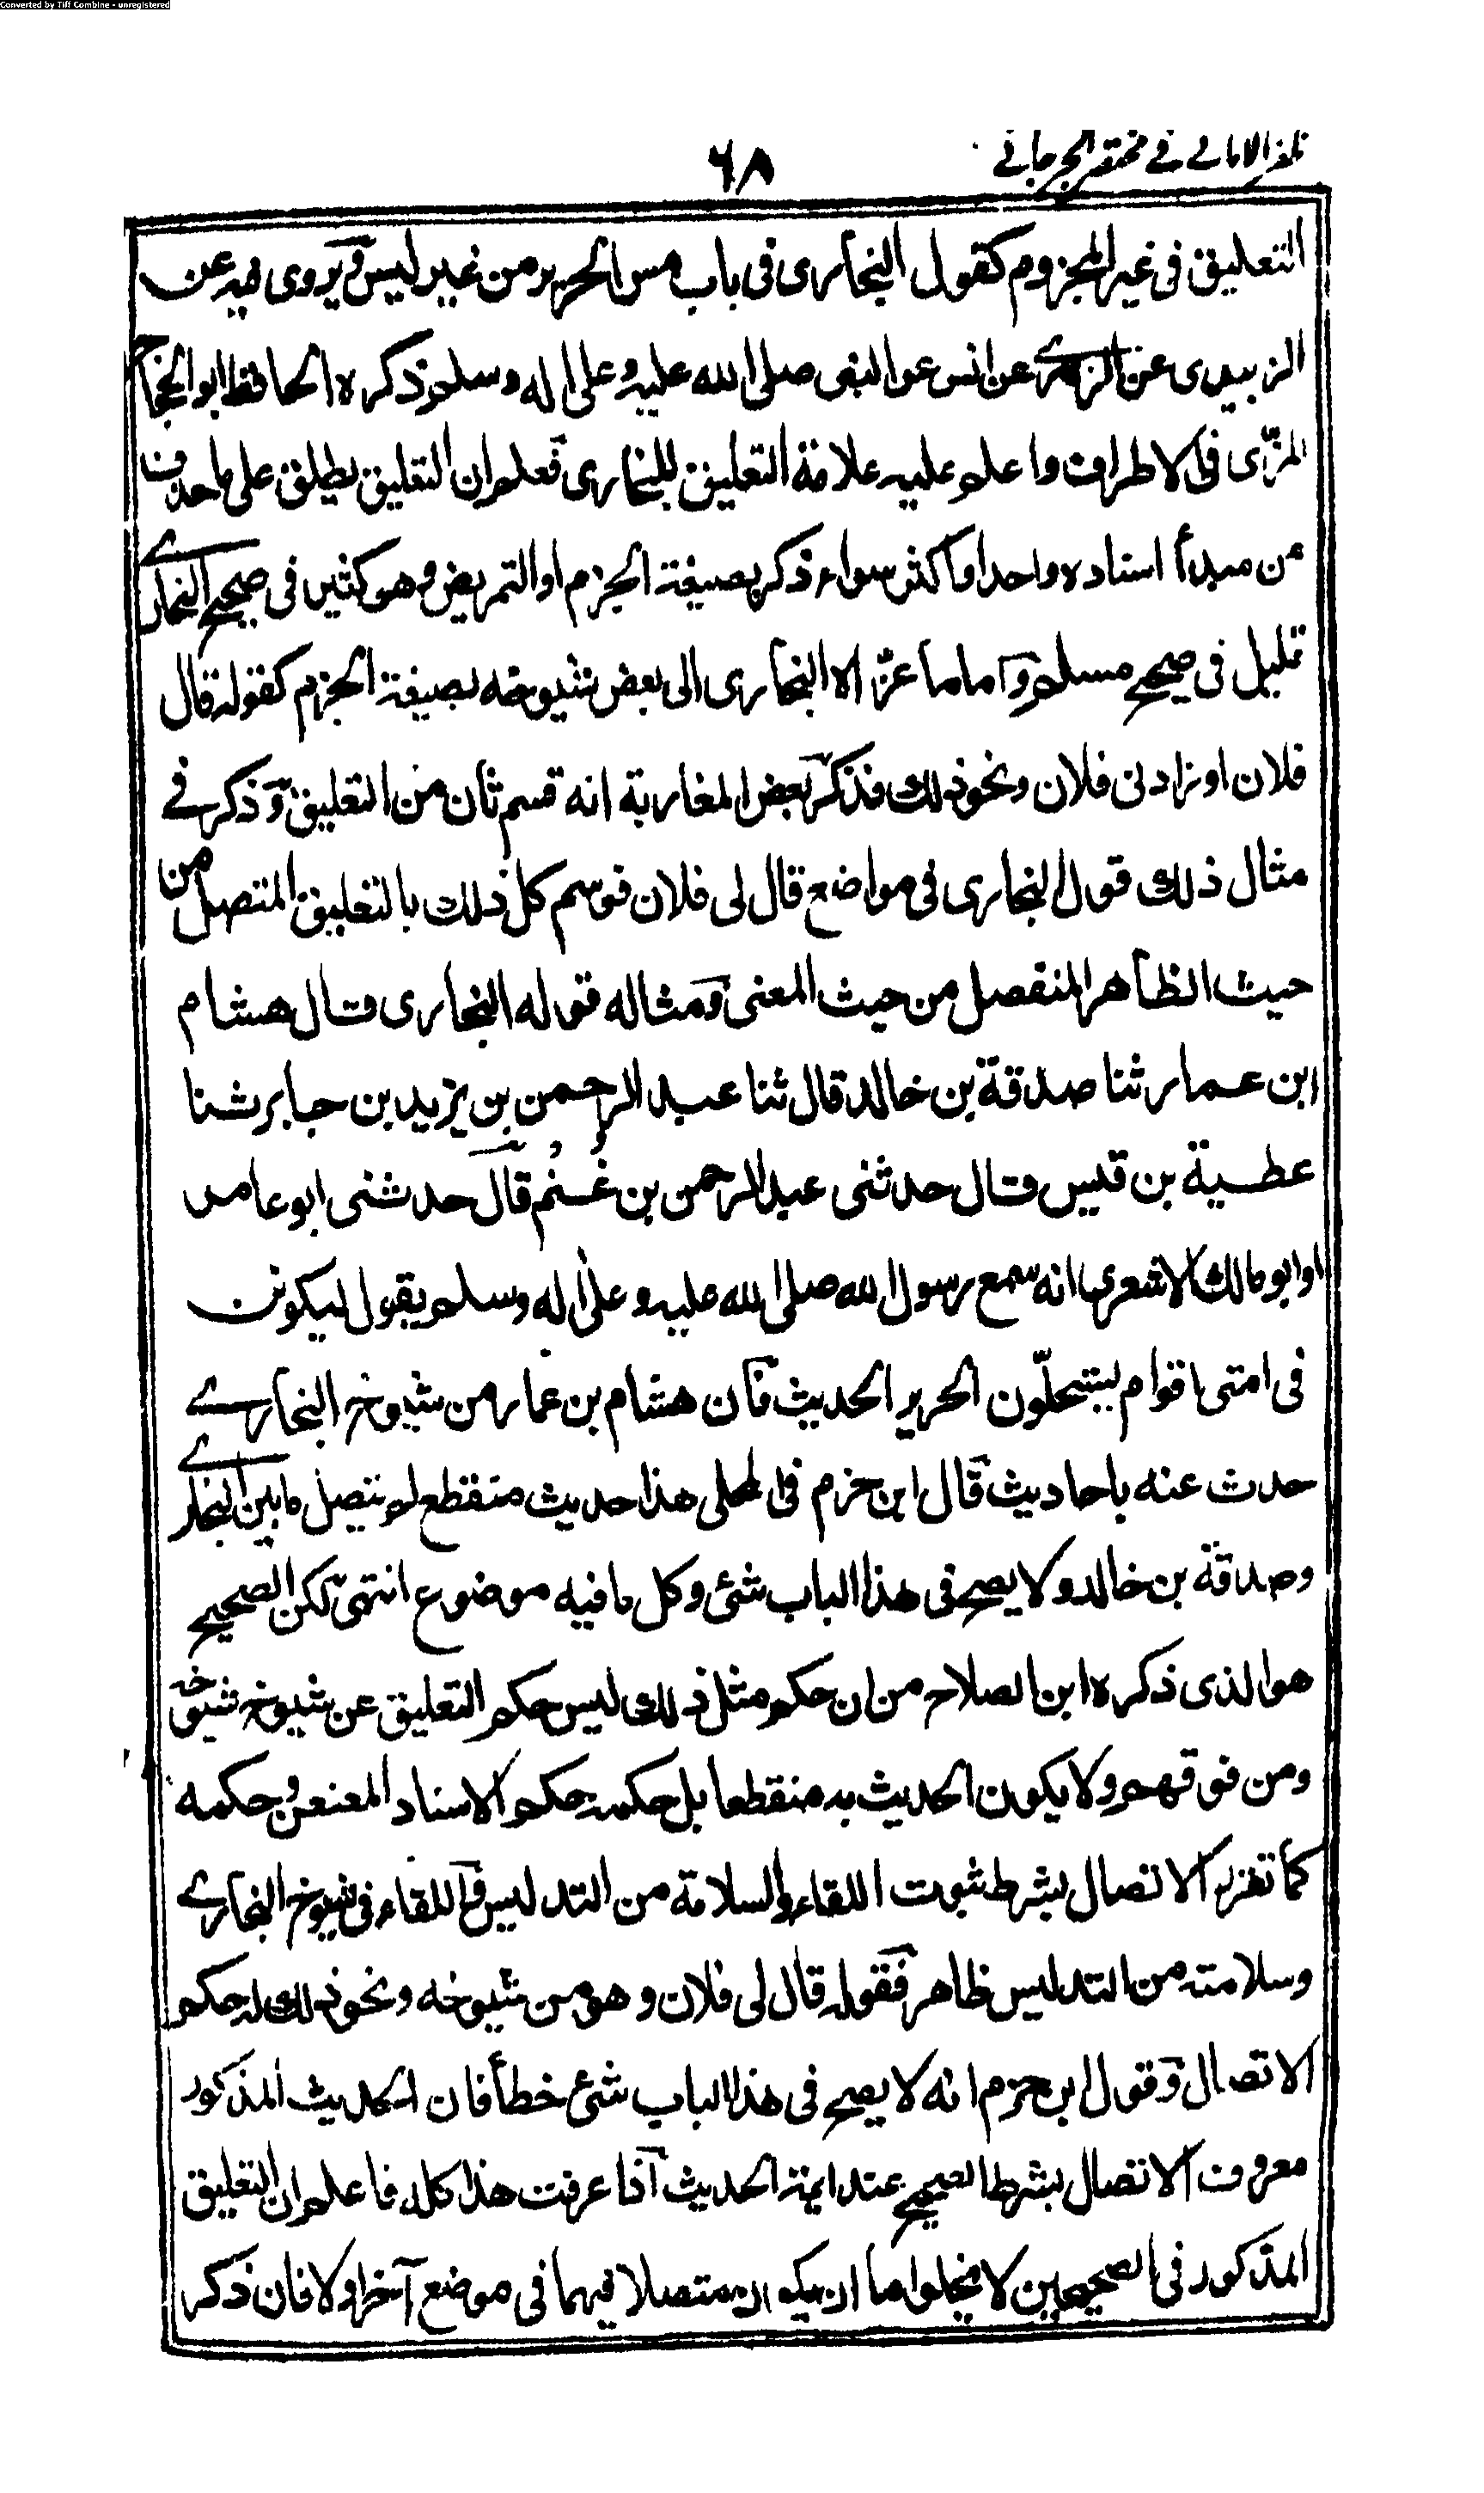 Converted by Tiff Combine - unregistered
ظفر الاماني في مختصر الجرجاني
٦٨
التعليق في غير المجزوم كقول البخاري في باب مس الحرير من غير لبس ويروى فيه عن
الزبيدي عن الزهري عن انس عن النبي صلى الله عليه وعلى اله وسلم ذكره الحافظ ابو الحجاج
المزّي في الاطراف واعلم عليه علامة التعليق للبخاري فعلم ان التعليق يطلق على ما حذف
من مبدأ اسناده واحد او اكثر سواء ذكر بصيغة الجزم او التمريض وهو كثير في صحيح البخاري
قليل في صحيح مسلم واما ما عزاه البخاري الى بعض شيوخه بصيغة الجزم كقوله قال
فلان او زاد لي فلان ونحو ذلك فذكر بعض المغاربة انه قسم ثان من التعليق وذكر في
مثال ذلك قول البخاري في مواضع قال لي فلان فوسم كل ذلك بالتعليق المتصل من
حيث الظاهر المنفصل من حيث المعنى ومثاله قوله البخاري قال هشام
ابن عمار ثنا صدقة بن خالد قال ثنا عبد الرحمن بن يزيد بن جابر ثنا
عطية بن قيس قال حدثني عبد الرحمن بن غُنْم قال حدثني ابو عامر
او ابو مالك الاشعري انه سمع رسول الله صلى الله عليه وعلى اله وسلم يقول ليكونن
في امتي اقوام يستحلّون الحرير الحديث فان هشام بن عمار من شيوخ البخاري
حدث عنه باحاديث قال ابن حزم في المحلى هذا حديث منقطع لم يتصل ما بين البخاري
وصدقة بن خالد ولا يصح في هذا الباب شئ وكل ما فيه موضوع انتهى لكن الصحيح
هو الذي ذكره ابن الصلاح من ان حكم مثل ذلك ليس حكم التعليق عن شيوخ شيوخه
ومن فوقهم ولا يكون الحديث به منقطعا بل حكمه حكم الاسناد المعنعن وحكمه
كما تقرر الاتصال بشرط ثبوت اللقاء والسلامة من التدليس واللقاء في شيوخ البخاري
وسلامته من التدليس ظاهر فقوله قال لي فلان وهو من شيوخه ونحو ذلك له حكم
الاتصال وقول ابن حزم انه لا يصح في هذا الباب شئ خطأ فان الحديث المذكور
معروف الاتصال بشرط الصحيح عند ايمة الحديث اذا عرفت هذا كله فاعلم ان التعليق
المذكور في الصحيحين لا يخلو اما ان يكون متصلا فيهما في موضع آخر او لا فان ذكر